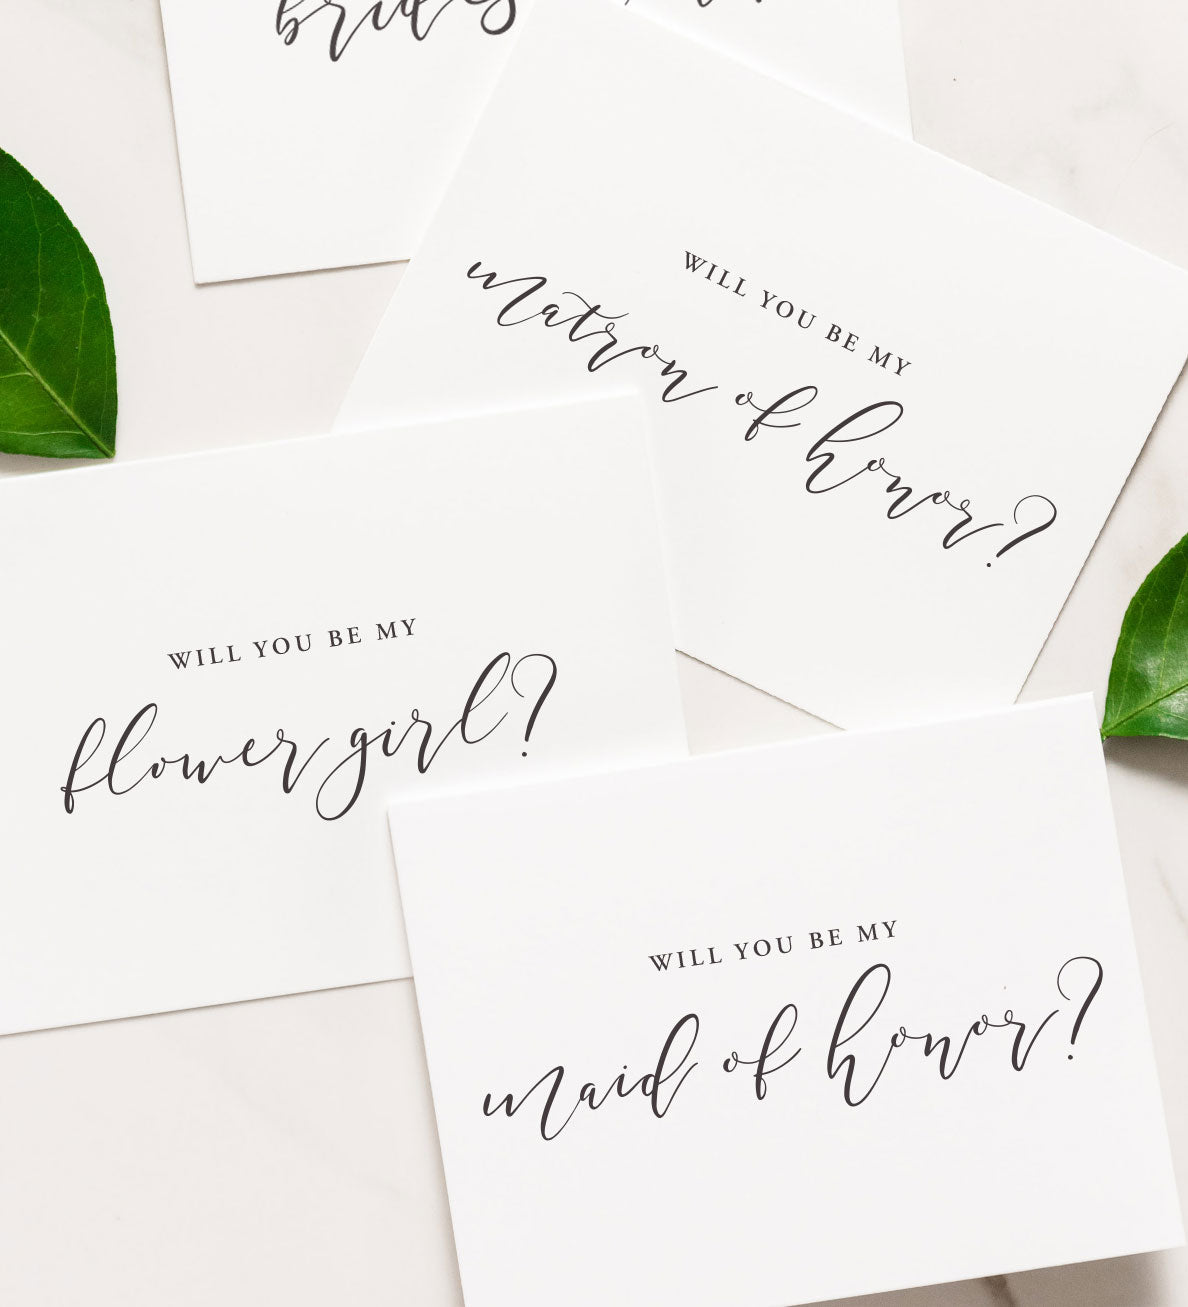 WILL YOU BE MY
matron of honor?
WILL YOU BE MY
flower girl?
WILL YOU BE MY
maid of honor?